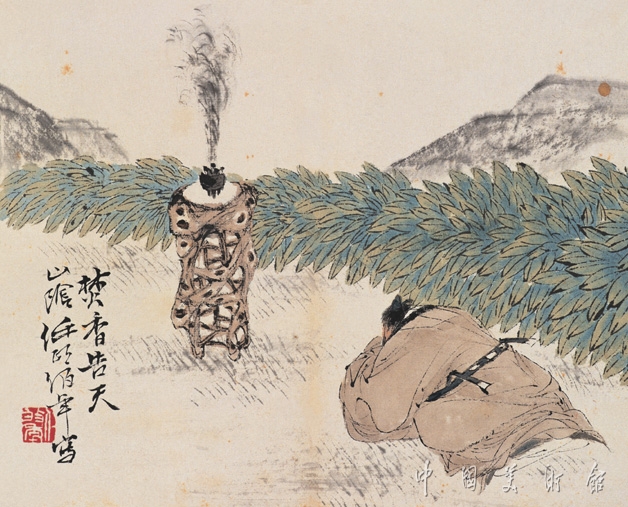 焚香告天
山陰任頤伯年寫
中国美术馆